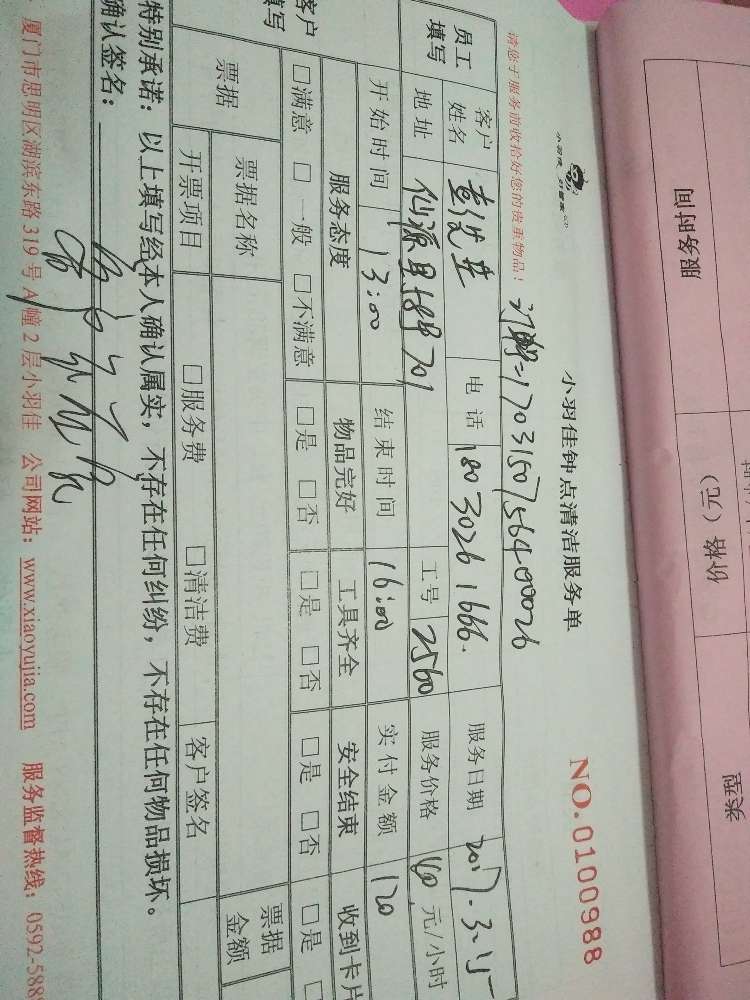 小羽佳钟点清洁服务单
NO.0100988
请您于服务前收拾好您的贵重物品！
1703150756400026
员工填写
客户姓名
先生
电话
18030261666.
服务日期
2017.3.15
地址
仙源里 701
工号
2560
服务价格
40 元/小时
开始时间
13:00
结束时间
16:00
实付金额
120
客户填写
服务态度
物品完好
工具齐全
安全结束
收到卡片
□满意 □一般 □不满意
□是 □否
□是 □否
□是 □否
□是
票据
票据名称
票据金额
开票项目
□服务费
□清洁费
客户签名
特别承诺：以上填写经本人确认属实，不存在任何纠纷，不存在任何物品损坏。
确认签名：
厦门市思明区湖滨东路319号A幢2层小羽佳 公司网站：www.xiaoyujia.com 服务监督热线：0592-588
服务时间
价格（元）
类型